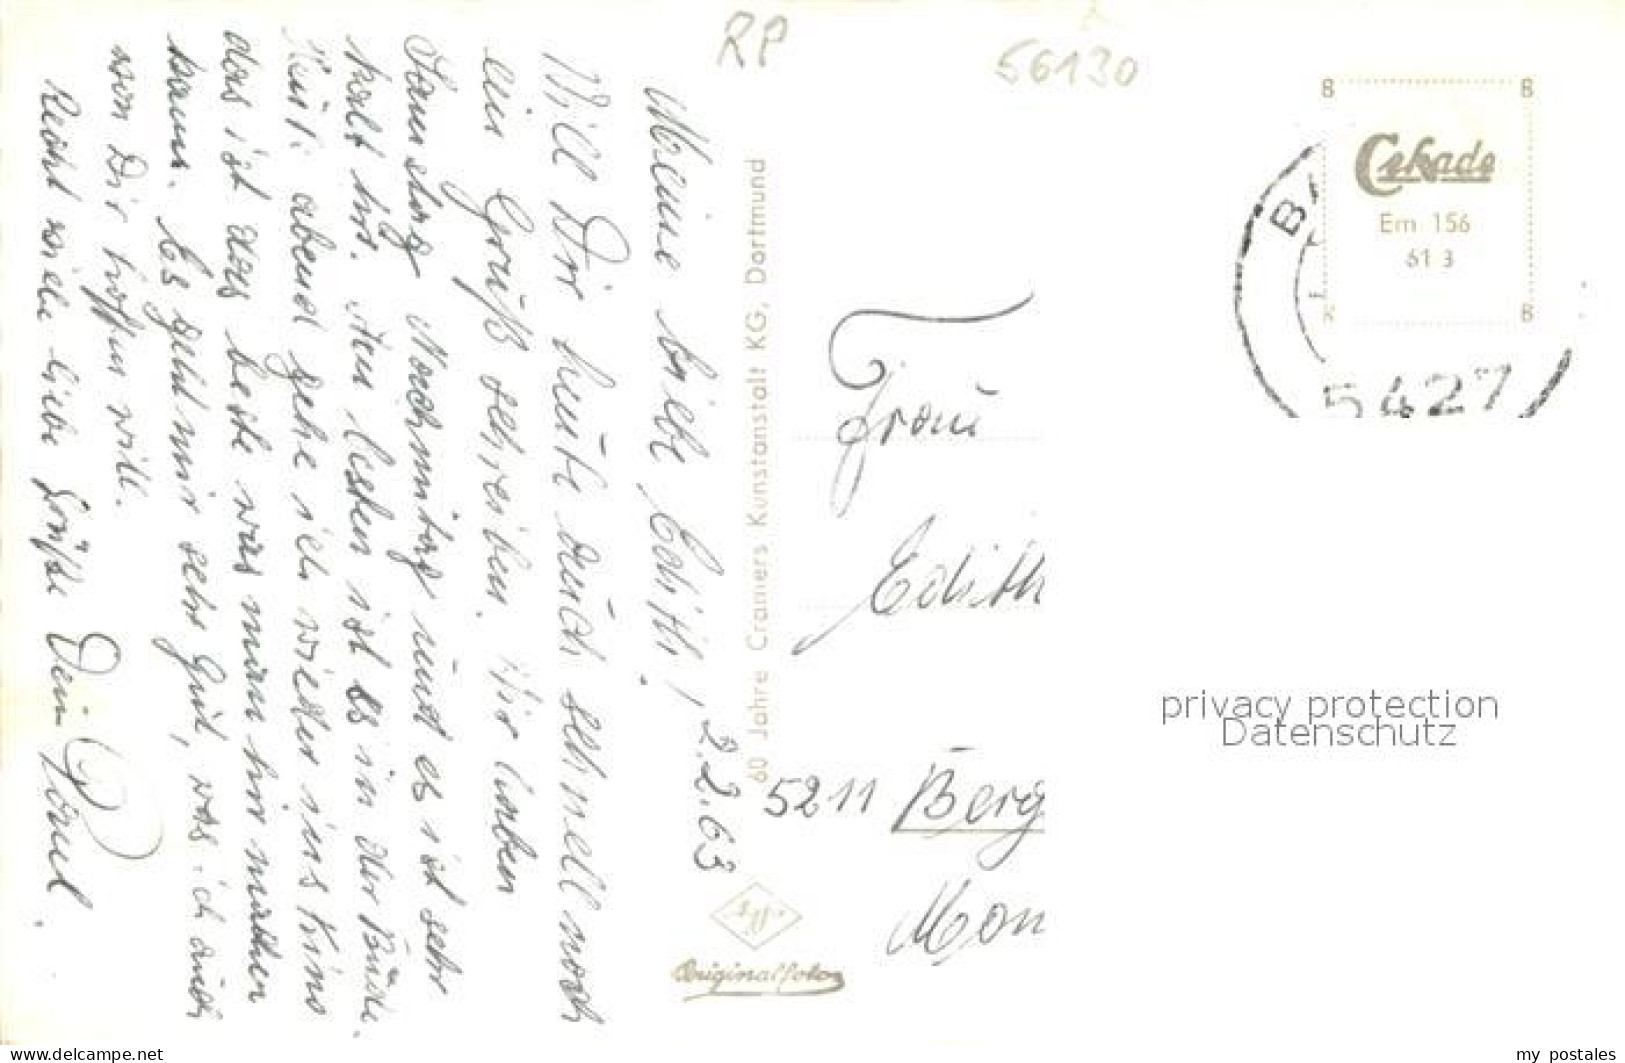 RP
56130
Meine liebe Edith!
2.2.63
Will Dir heute auch schnell noch
ein Gruß schreiben. Wir haben
Samstag Nachmittag und es ist sehr
kalt hir. Am besten ist es in der Bude.
abend gehe ich wieder ins Kino
das ist das beste was man hir machen
kann. Es geht mir sehr Gut, was ich auch
von Dir hoffen will.
Recht viele liebe Grüße Dein Paul.
60 Jahre Cramers Kunstanstalt KG, Dortmund
Originalfoto
B B
Cekade
Em 156
61 3
B
B
5427
Frau
Edith
5211 Berg
Mon
privacy protection
Datenschutz
www.delcampe.net
my_postales